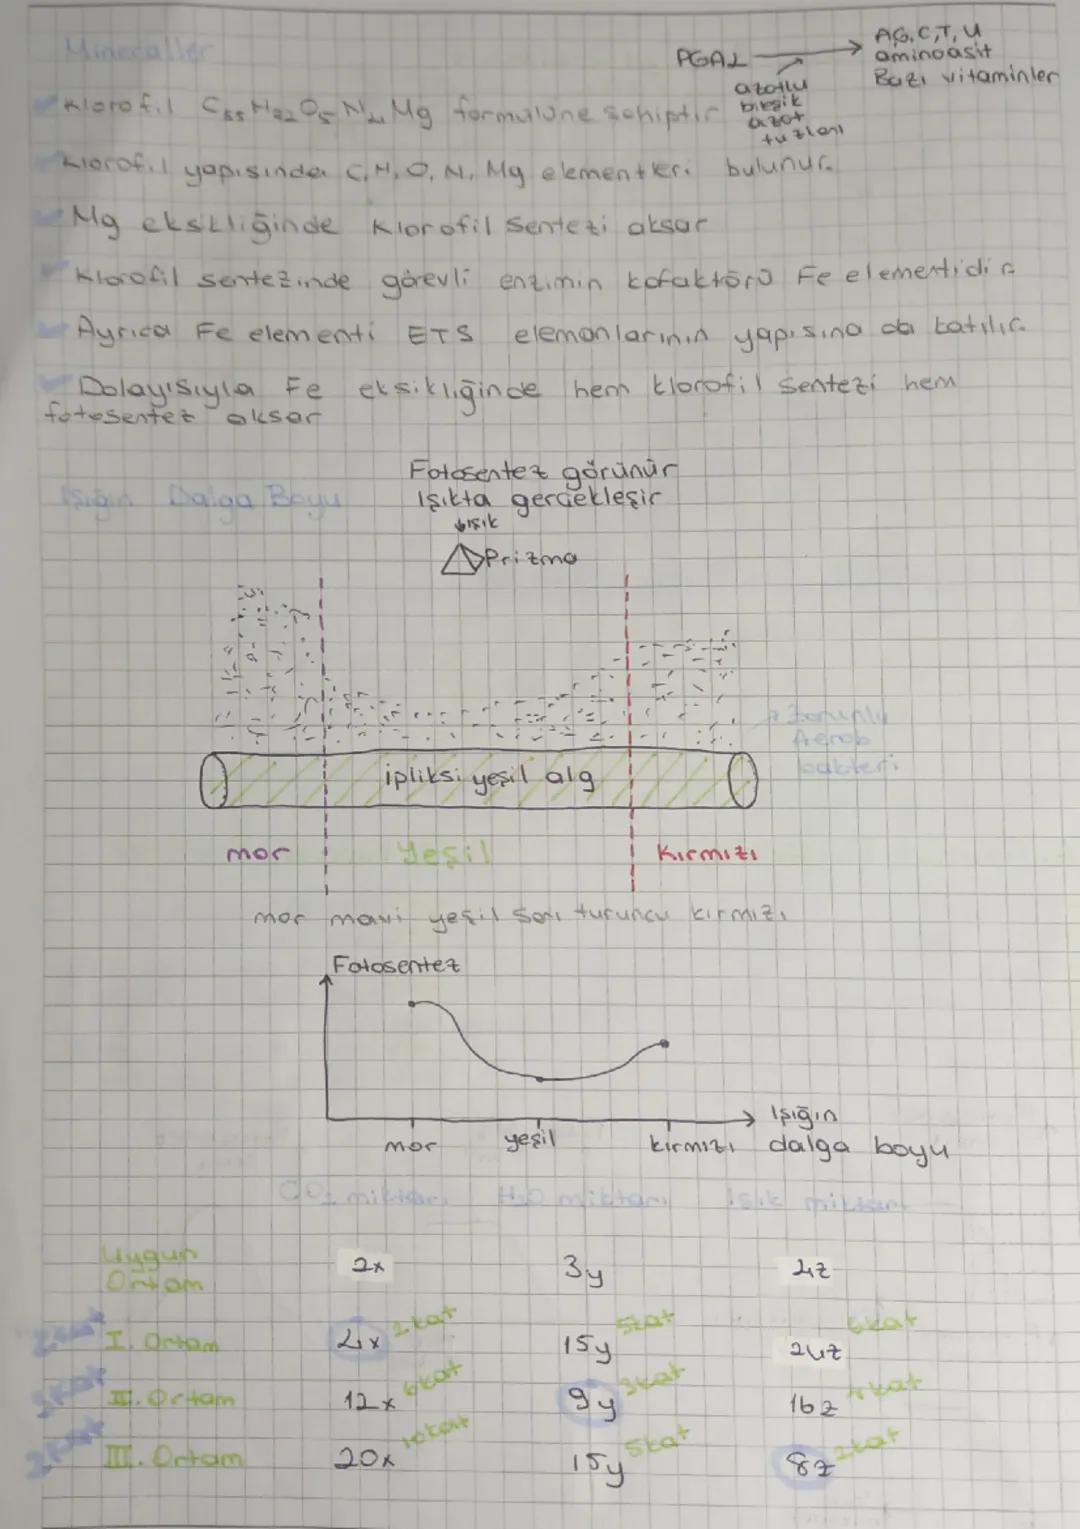 Mineraller
PGAL → A,G,C,T,U
aminoasit
Bazı vitaminler
azotlu
bileşik
azot
tuzları
Klorofil C55H72O5N4Mg formülüne sahiptir
Klorofil yapısında C, H, O, N, Mg elementleri bulunur.
Mg eksikliğinde Klorofil Sentezi aksar
Klorofil sentezinde görevli enzimin kofaktörü Fe elementidir
Ayrıca Fe elementi ETS elemanlarının yapısına da katılır.
Dolayısıyla Fe eksikliğinde hem klorofil sentezi hem
fotosentez aksar
Işığın Dalga Boyu
Fotosentez görünür
Işıkta gerçekleşir
ışık
Prizma
Zorunlu
Aerob
bakteri
ipliksi yeşil alg
mor Yeşil Kırmızı
mor mavi yeşil Sarı turuncu kırmızı
Fotosentez
mor yeşil kırmızı
Işığın
dalga boyu
CO2 miktarı H2O miktarı Işık miktarı
Uygun
Ortam 2x 3y 4z
2kat I. Ortam 4x 2kat 15y 5kat 24z 6kat
3kat II. Ortam 12x 6kat 9y 3kat 16z 4kat
2kat III. Ortam 20x 10kat 15y 5kat 8z 2kat